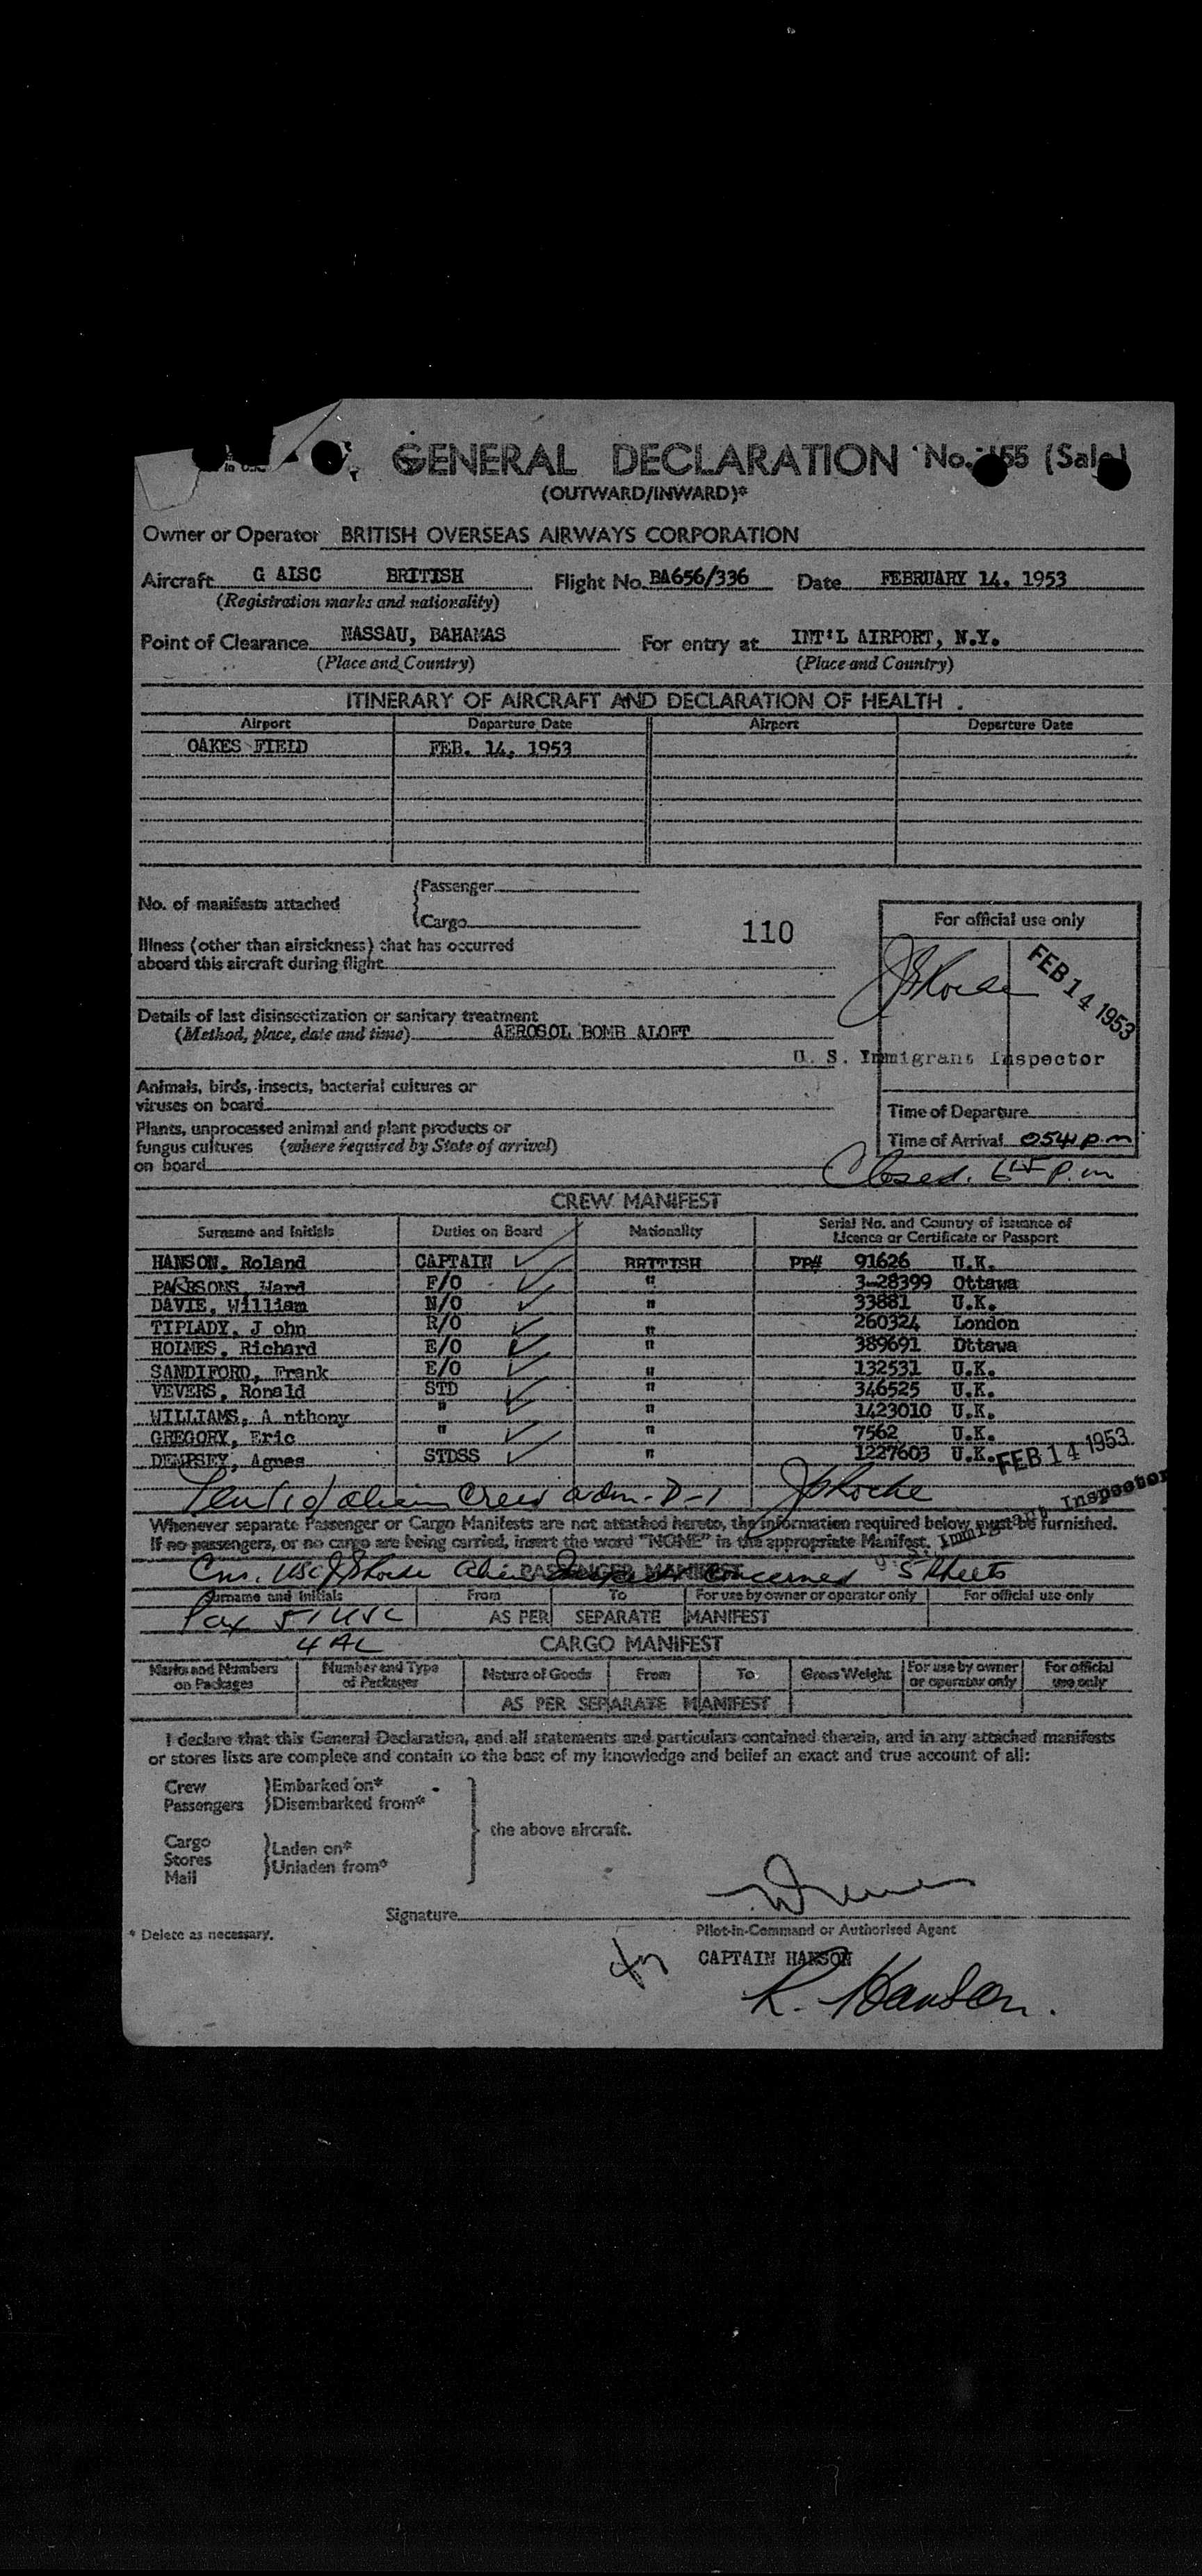 GENERAL DECLARATION No. 155 (Sale)
(OUTWARD/INWARD)*
Owner or Operator BRITISH OVERSEAS AIRWAYS CORPORATION
Aircraft G AISC BRITISH Flight No. BA656/336 Date FEBRUARY 14, 1953
(Registration marks and nationality)
Point of Clearance NASSAU, BAHAMAS For entry at INT'L AIRPORT, N.Y.
(Place and Country) (Place and Country)
ITINERARY OF AIRCRAFT AND DECLARATION OF HEALTH
Airport Departure Date Airport Departure Date
OAKES FIELD FEB. 14, 1953
No. of manifests attached
Passenger
Cargo
110
For official use only
Illness (other than airsickness) that has occurred
aboard this aircraft during flight
FEB 14 1953
Details of last disinsectization or sanitary treatment
(Method, place, date and time) AEROSOL BOMB ALOFT
U. S. Immigrant Inspector
Animals, birds, insects, bacterial cultures or
viruses on board
Time of Departure
Plants, unprocessed animal and plant products or
fungus cultures (where required by State of arrival)
on board
Time of Arrival 0541 p.m
Closed. p.m
CREW MANIFEST
Surname and Initials Duties on Board Nationality Serial No. and Country of issuance of Licence or Certificate or Passport
HANSON, Roland CAPTAIN BRITISH PP# 91626 U.K.
PARSONS, Ward F/O " 3-28399 Ottawa
DAVIE, William N/O " 33881 U.K.
TIPLADY, J ohn R/O " 260324 London
HOLMES, Richard E/O " 389691 Ottawa
SANDIFORD, Frank E/O " 132531 U.K.
VEVERS, Ronald STD " 346525 U.K.
WILLIAMS, A nthony " " 1423010 U.K.
GREGORY, Eric " " 7562 U.K.
DEMPSEY, Agnes STDSS " 1227603 U.K.
FEB 14 1953
Ten (10) alien crew adm. D-1
Immigrant Inspector
Whenever separate Passenger or Cargo Manifests are not attached hereto, the information required below must be furnished.
If no passengers, or no cargo are being carried, insert the word "NONE" in the appropriate Manifest.
PASSENGER MANIFEST
concerned 5 Sheets
Surname and Initials From To For use by owner or operator only For official use only
Pax 51 USC AS PER SEPARATE MANIFEST
4 AL
CARGO MANIFEST
Marks and Numbers on Packages Number and Type of Packages Nature of Goods From To Gross Weight For use by owner or operator only For official use only
AS PER SEPARATE MANIFEST
I declare that this General Declaration, and all statements and particulars contained therein, and in any attached manifests
or stores lists are complete and contain to the best of my knowledge and belief an exact and true account of all:
Crew
Passengers
Embarked on*
Disembarked from*
Cargo
Stores
Mail
Laden on*
Unladen from*
the above aircraft.
Signature
* Delete as necessary.
Pilot-in-Command or Authorised Agent
for CAPTAIN HANSON
R. Hanson.